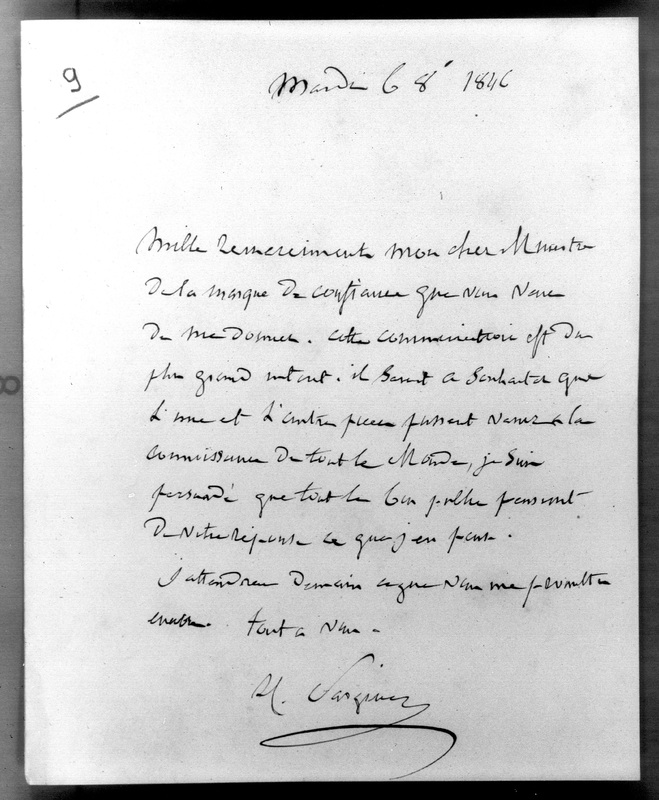 9
Mardi 6 8e 1846
Mille remerciments mon cher Ministre
De la marque De confiance que vous venez
De me donner. cette communication est Du
plus grand intérêt. il serait a souhaiter que
L'une et L'autre piece pussent venir a la
connaissance De tout le Monde, je suis
persuadé que tout le bon public penserait
De votre réponse ce que j'en pense.
J'attendrai Demain ce que vous me promettez
encore. tout a vous.